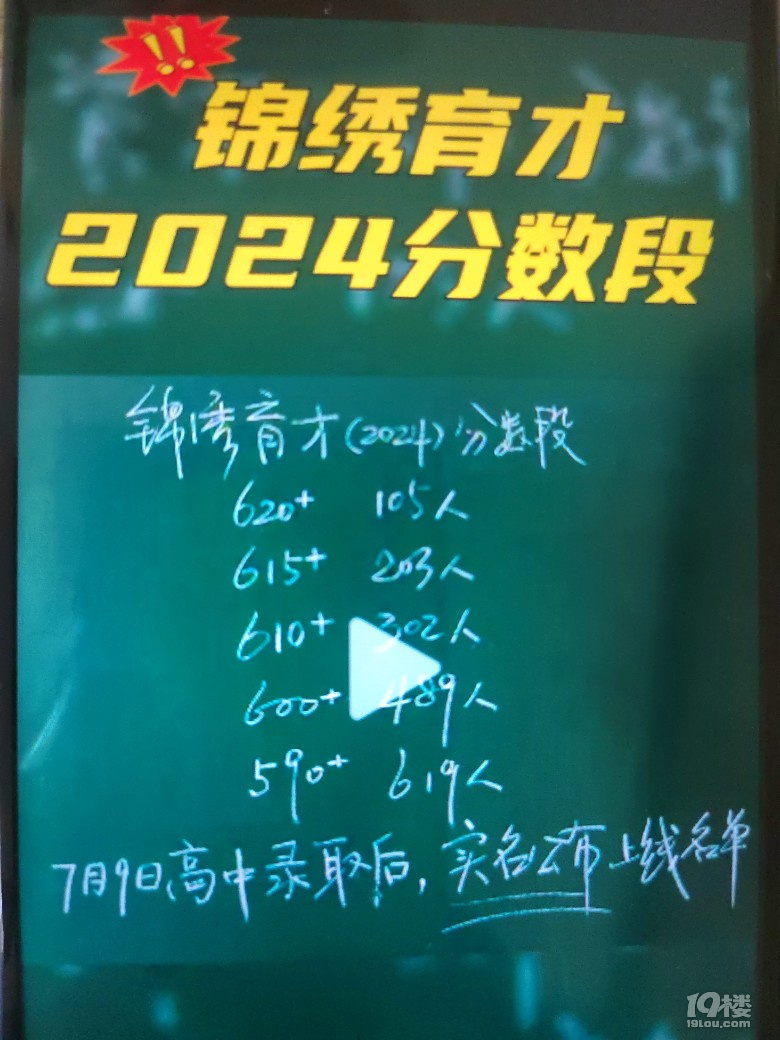 !!
锦绣育才
2024分数段
锦绣育才(2024)分数段
620+ 105人
615+ 203人
610+ 302人
600+ 489人
590+ 619人
7月9日高中录取后,实名公布上线名单
19楼
19lou.com